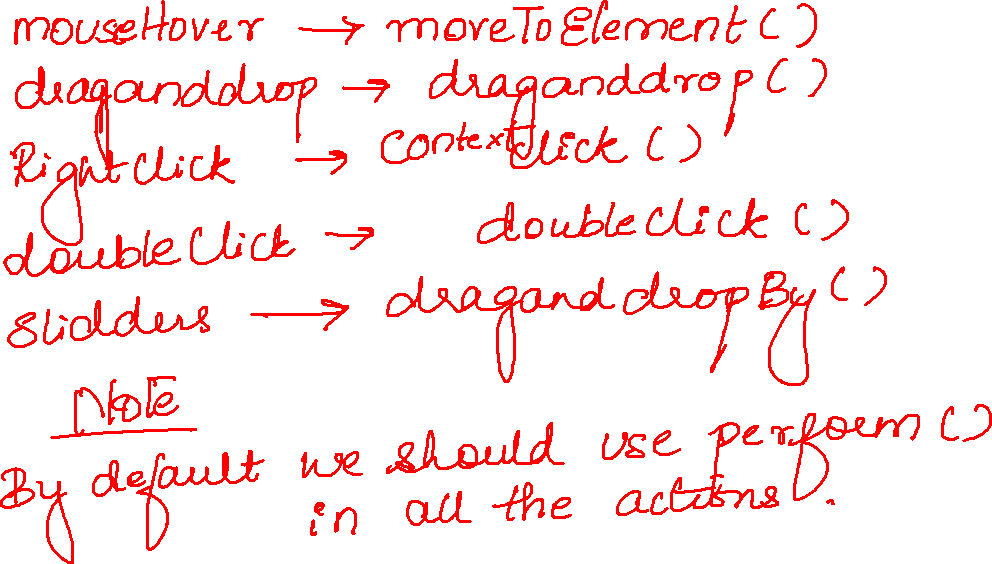 mouseHover → moveToElement()
draganddrop → draganddrop()
RightClick → ContextClick()
doubleClick → doubleClick()
Slidders → draganddropBy()
Note
By default we should use perform()
in all the actions.